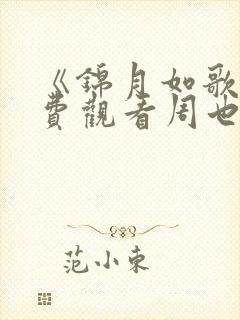 《錦月如歌
費觀看周也
范小東